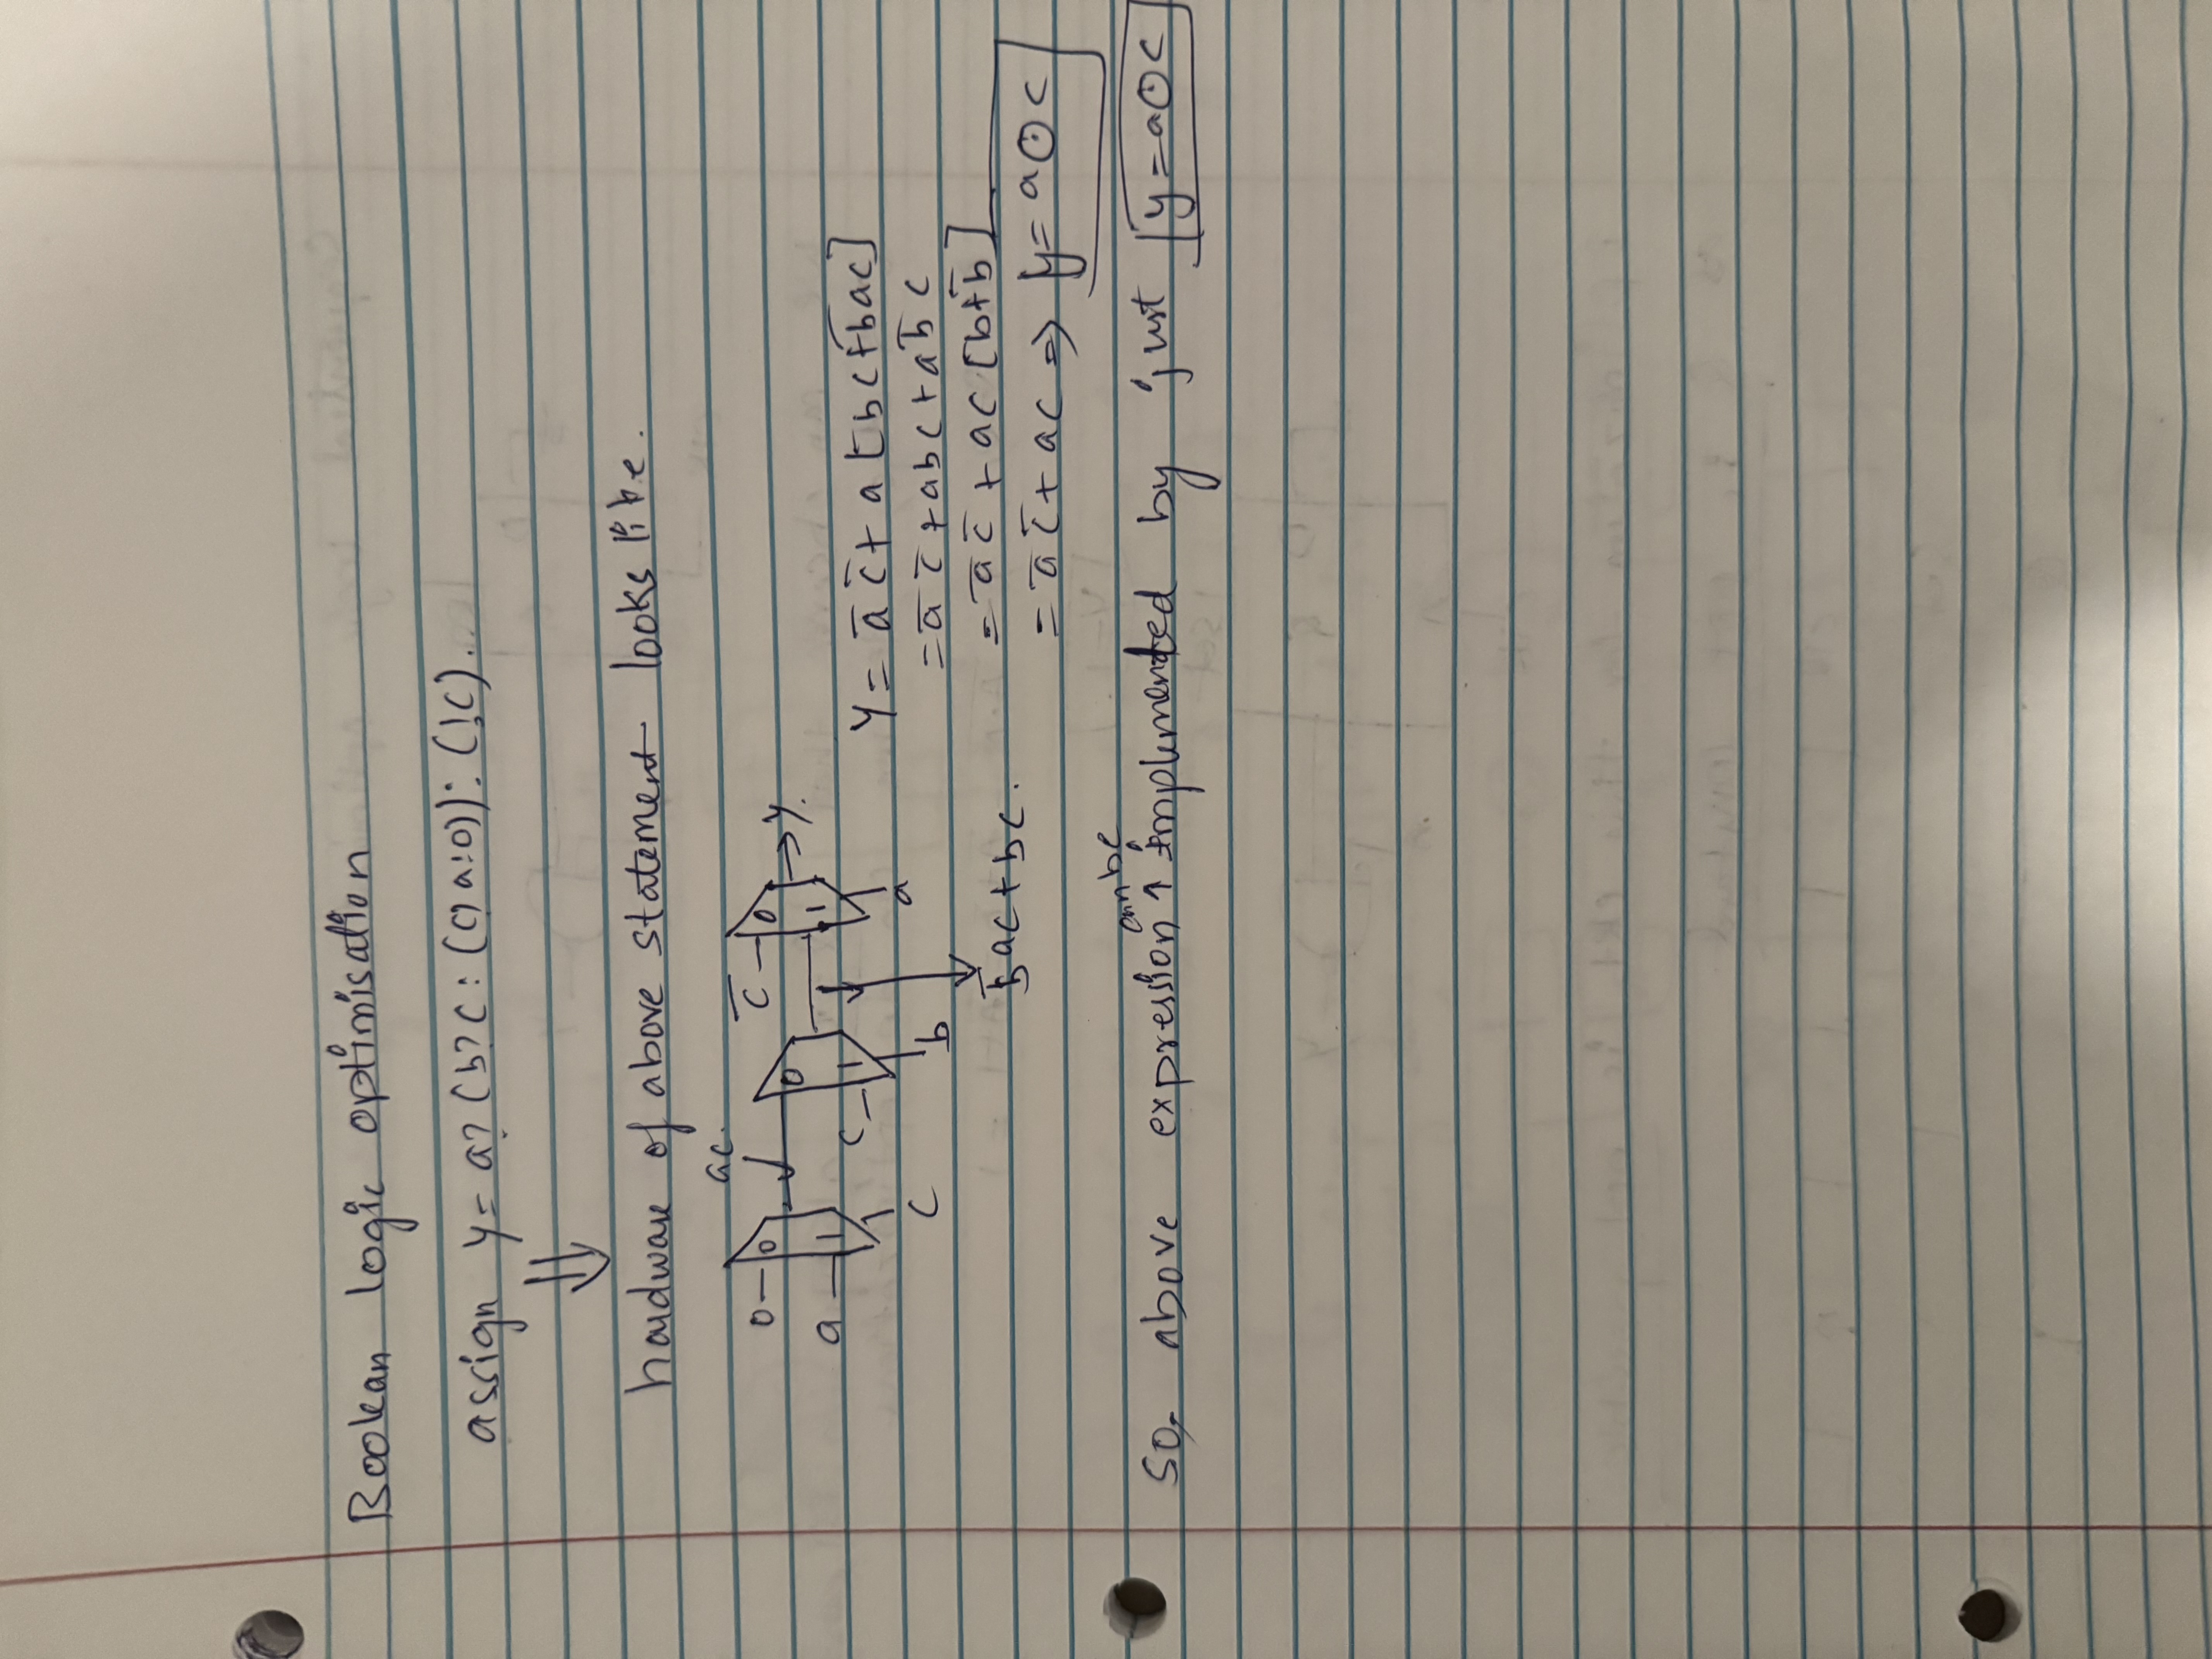 Boolean logic optimisation
assign y = a? (b? c : (c? a:0)) : (!c).
⇓
hardware of above statement looks like.
ac.
0 0 c̅ 0 → y.
a 1 0 1
c 1
c b a
b̅ac + bc.
y = a̅ c̅ + a [bc + b̅ac]
= a̅ c̅ + abc + ab̅c
= a̅ c̅ + ac [b+b̅]
= a̅ c̅ + ac ⇒ y = a⊙c
So, above expression can be ↑ implemented by just y = a⊙c